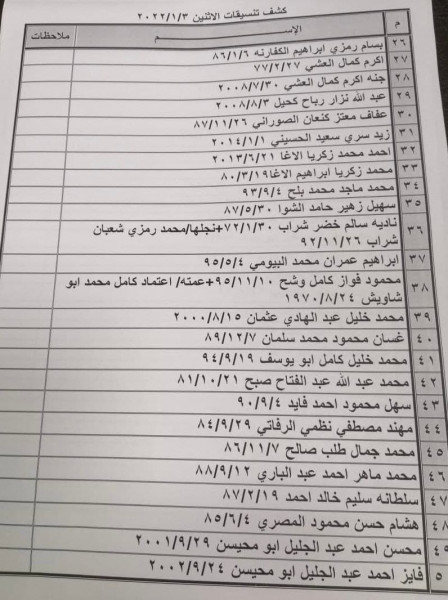 كشف تنسيقات الاثنين ٢٠٢٢/١/٣
م الإســـــم ملاحظات
٢٦ بسام رمزي ابراهيم الكفارنه ٨٦/١/٦
٢٧ اكرم كمال العشي ٧٧/٢/٢٧
٢٨ جنه اكرم كمال العشي ٢٠٠٨/٧/٣٠
٢٩ عبد الله نزار رباح كحيل ٢٠٠٨/٨/٣
٣٠ عفاف معتز كنعان الصوراني ٨٧/١١/٢٦
٣١ زيد سري سعيد الحسيني ٢٠١٤/١/١
٣٢ احمد محمد زكريا الاغا ٢٠١٣/٦/٢١
٣٣ محمد زكريا ابراهيم الاغا ٨٠/٣/١٩
٣٤ محمد ماجد محمد بلح ٩٣/٩/٤
٣٥ سهيل زهير حامد الشوا ٨٧/٥/٣٠
٣٦ ناديه سالم خضر شراب ٧٢/١/٣٠+نجلها/محمد رمزي شعبان
شراب ٩٢/١١/٢٦
٣٧ ابراهيم عمران محمد البيومي ٩٥/٥/٤
٣٨ محمود فواز كامل وشح ٩٥/١١/١٠+عمته/ اعتماد كامل محمد ابو
شاويش ١٩٧٠/٨/٢٤
٣٩ محمد خليل عبد الهادي عثمان ٢٠٠٠/٨/١٥
٤٠ غسان محمود محمد سلمان ٨٩/١٢/٧
٤١ محمد خليل كامل ابو يوسف ٩٤/٩/١٩
٤٢ محمد عبد الله عبد الفتاح صبح ٨١/١٠/٢١
٤٣ سهل محمود احمد فايد ٩٠/٩/٤
٤٤ مهند مصطفي نظمي الرفاتي ٨٤/٩/٢٩
٤٥ محمد جمال طلب صالح ٨٦/١١/٧
٤٦ محمد ماهر احمد عبد الباري ٨٨/٩/١٢
٤٧ سلطانه سليم خالد احمد ٨٧/٢/١٩
٤٨ هشام حسن محمود المصري ٨٥/٦/٤
٤٩ محسن احمد عبد الجليل ابو محيسن ٢٠٠١/٩/٢٩
٥ فايز احمد عبد الجليل ابو محيسن ٢٠٠٢/٩/٢٤